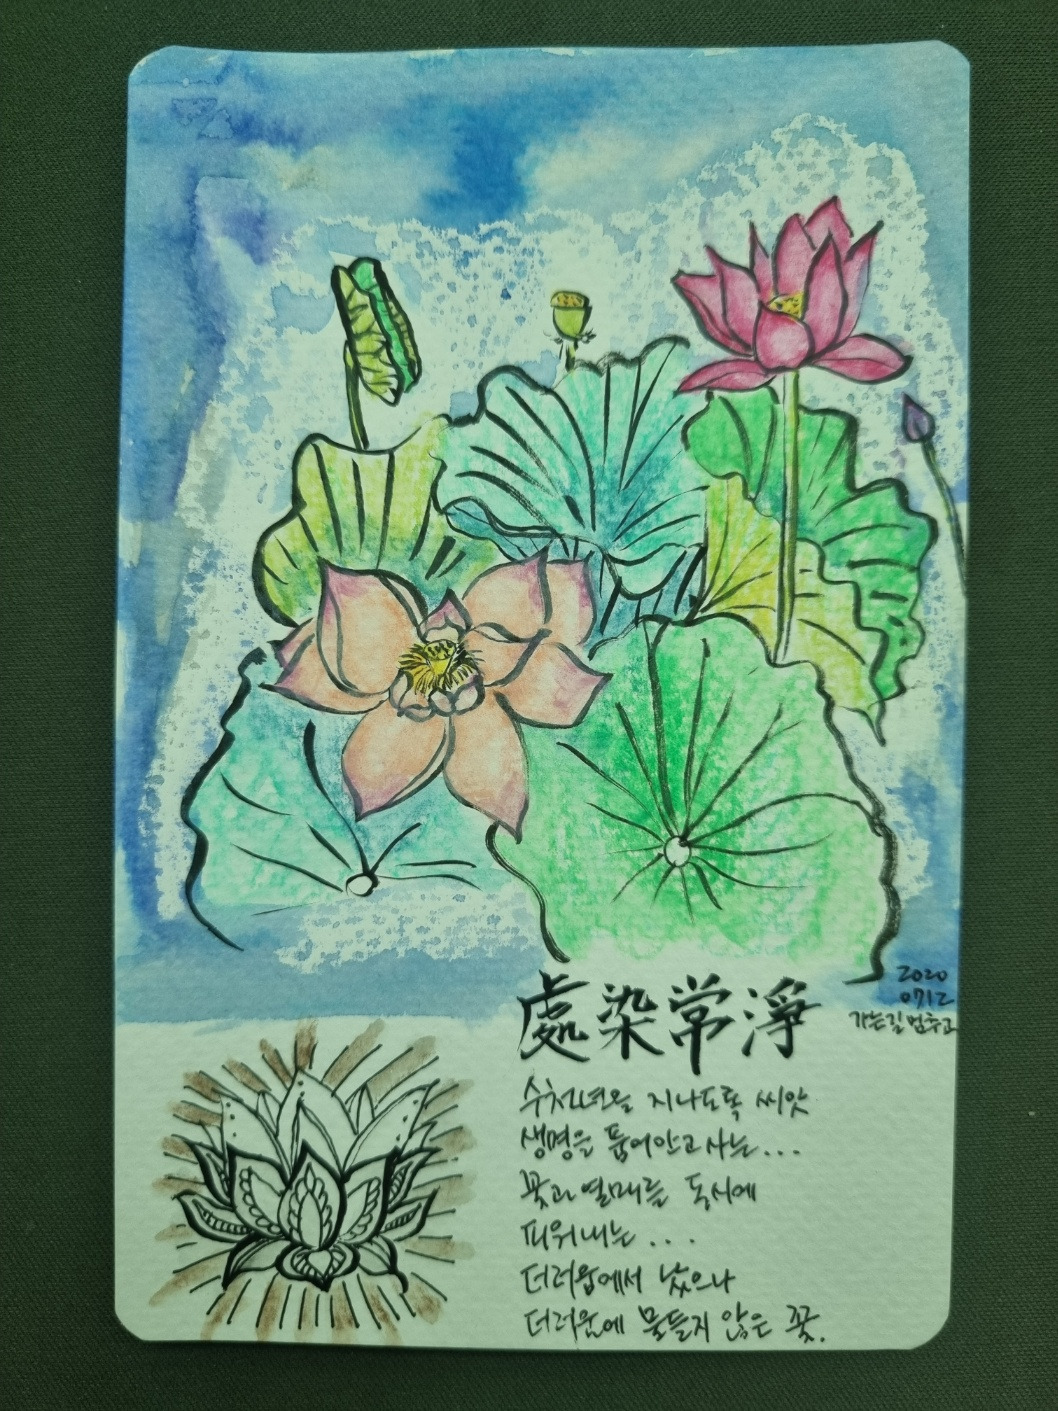 2020
0712
가는길 멈추고
處染常淨
수천년을 지나도록 씨앗
생명을 품어안고 사는...
꽃과 열매를 동시에
피워내는...
더러움에서 났으나
더러움에 물들지 않은 꽃.